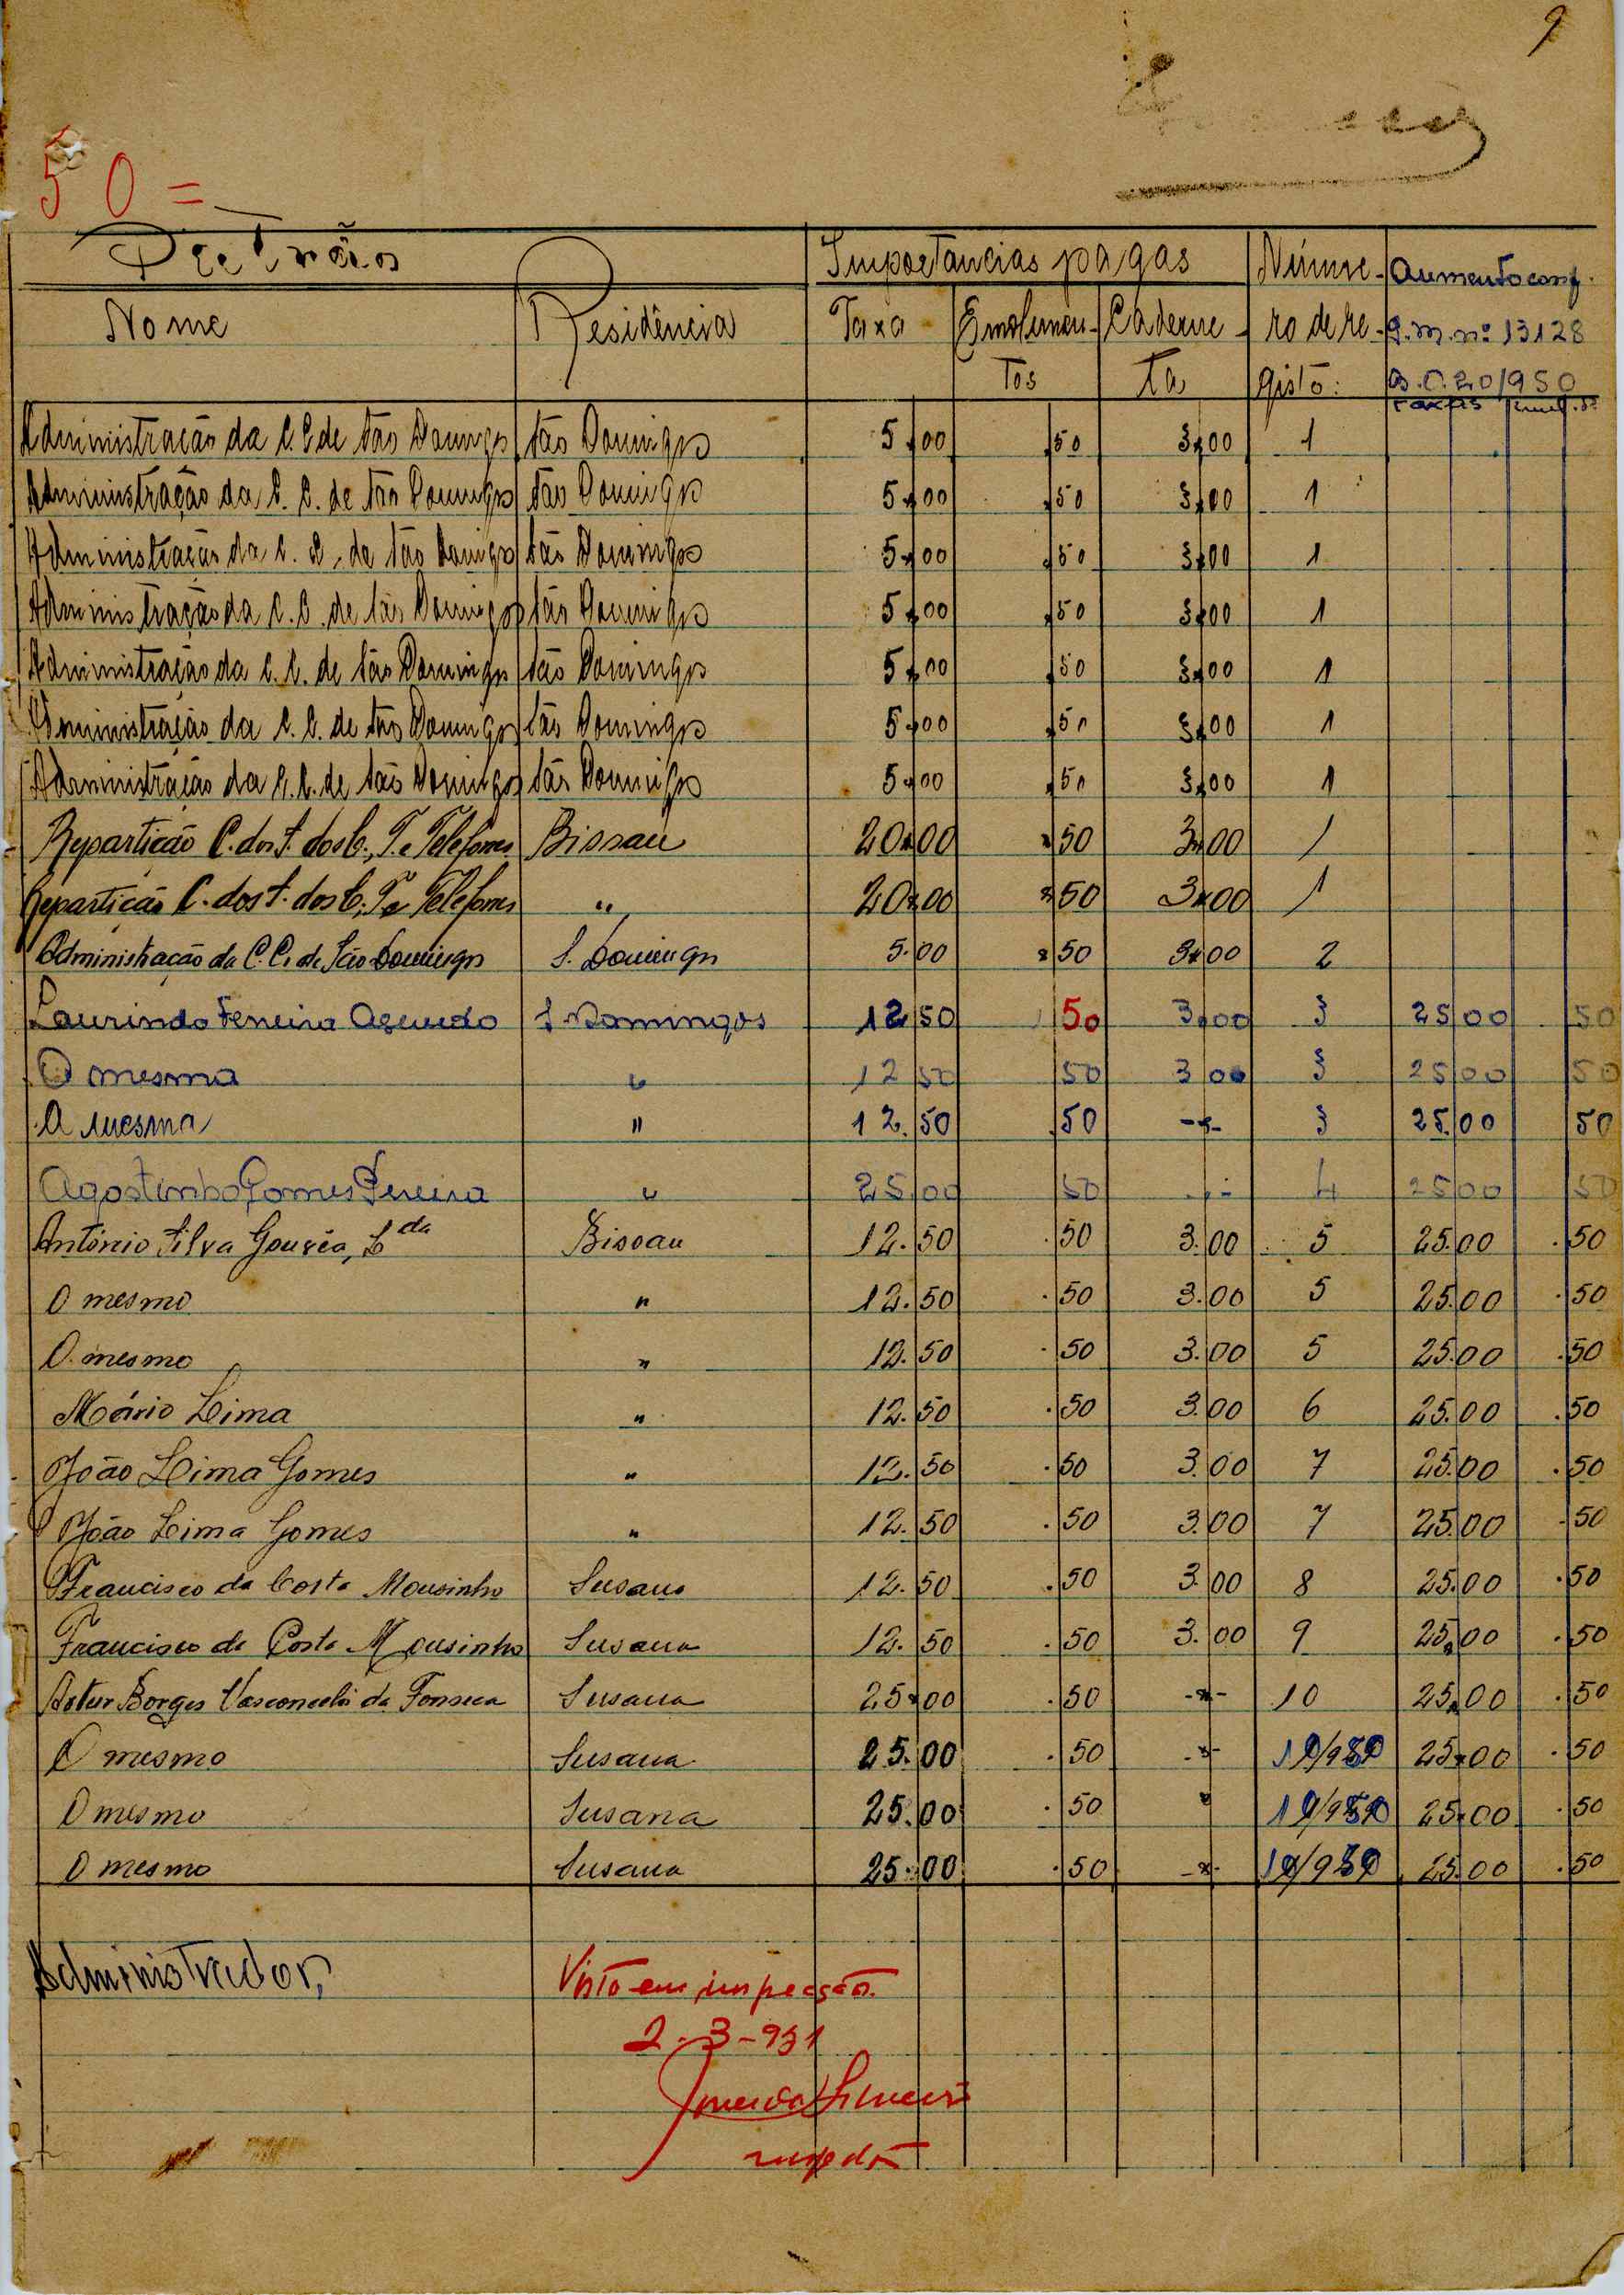 9
50=
Patrão
Importancias pagas Núme- Aumento conf.
Nome Residência Taxa Emolumen- Caderne- ro de re- P.M. nº 13128
tos ta gisto: B.O. 20/950
Taxas Emol.os
Administração da C. C. de São Domingos São Domingos 5.00 .50 3.00 1
Administração da C. C. de São Domingos São Domingos 5.00 .50 3.00 1
Administração da C. C. de São Domingos São Domingos 5.00 .50 3.00 1
Administração da C. C. de São Domingos São Domingos 5.00 .50 3.00 1
Administração da C. C. de São Domingos São Domingos 5.00 .50 3.00 1
Administração da C. C. de São Domingos São Domingos 5.00 .50 3.00 1
Administração da C. C. de São Domingos São Domingos 5.00 .50 3.00 1
Repartição C. dos S. dos C., T. e Telefones Bissau 20.00 .50 3.00 1
Repartição C. dos S. dos C., T. e Telefones " 20.00 .50 3.00 1
Administração da C. C. de São Domingos S. Domingos 5.00 .50 3.00 2
Laurinda Ferreira Azevedo S. Domingos 12 50 50 3.00 3 25 00 50
A mesma " 12 50 50 3 00 3 25 00 50
A mesma " 12.50 .50 -.- 3 25.00 50
Agostinho Gomes Pereira " 25 00 50 -.- 4 25 00 50
António Silva Gouvêa, Lda Bissau 12.50 .50 3.00 5 25.00 .50
O mesmo " 12.50 .50 3.00 5 25.00 .50
O mesmo " 12.50 .50 3.00 5 25.00 .50
Mário Lima " 12.50 .50 3.00 6 25.00 .50
João Lima Gomes " 12.50 .50 3.00 7 25.00 .50
João Lima Gomes " 12.50 .50 3.00 7 25.00 .50
Francisco da Costa Mousinho Susana 12.50 .50 3.00 8 25.00 .50
Francisco da Costa Mousinho Susana 12.50 .50 3.00 9 25.00 .50
Artur Borges Vasconcelos da Fonseca Susana 25.00 .50 -.- 10 25.00 .50
O mesmo Susana 25.00 .50 -.- 25.00 .50
O mesmo Susana 25.00 .50 . 25.00 .50
O mesmo Susana 25.00 .50 -.- 25.00 .50
Administrador,
Visto em inspecção.
2-3-951